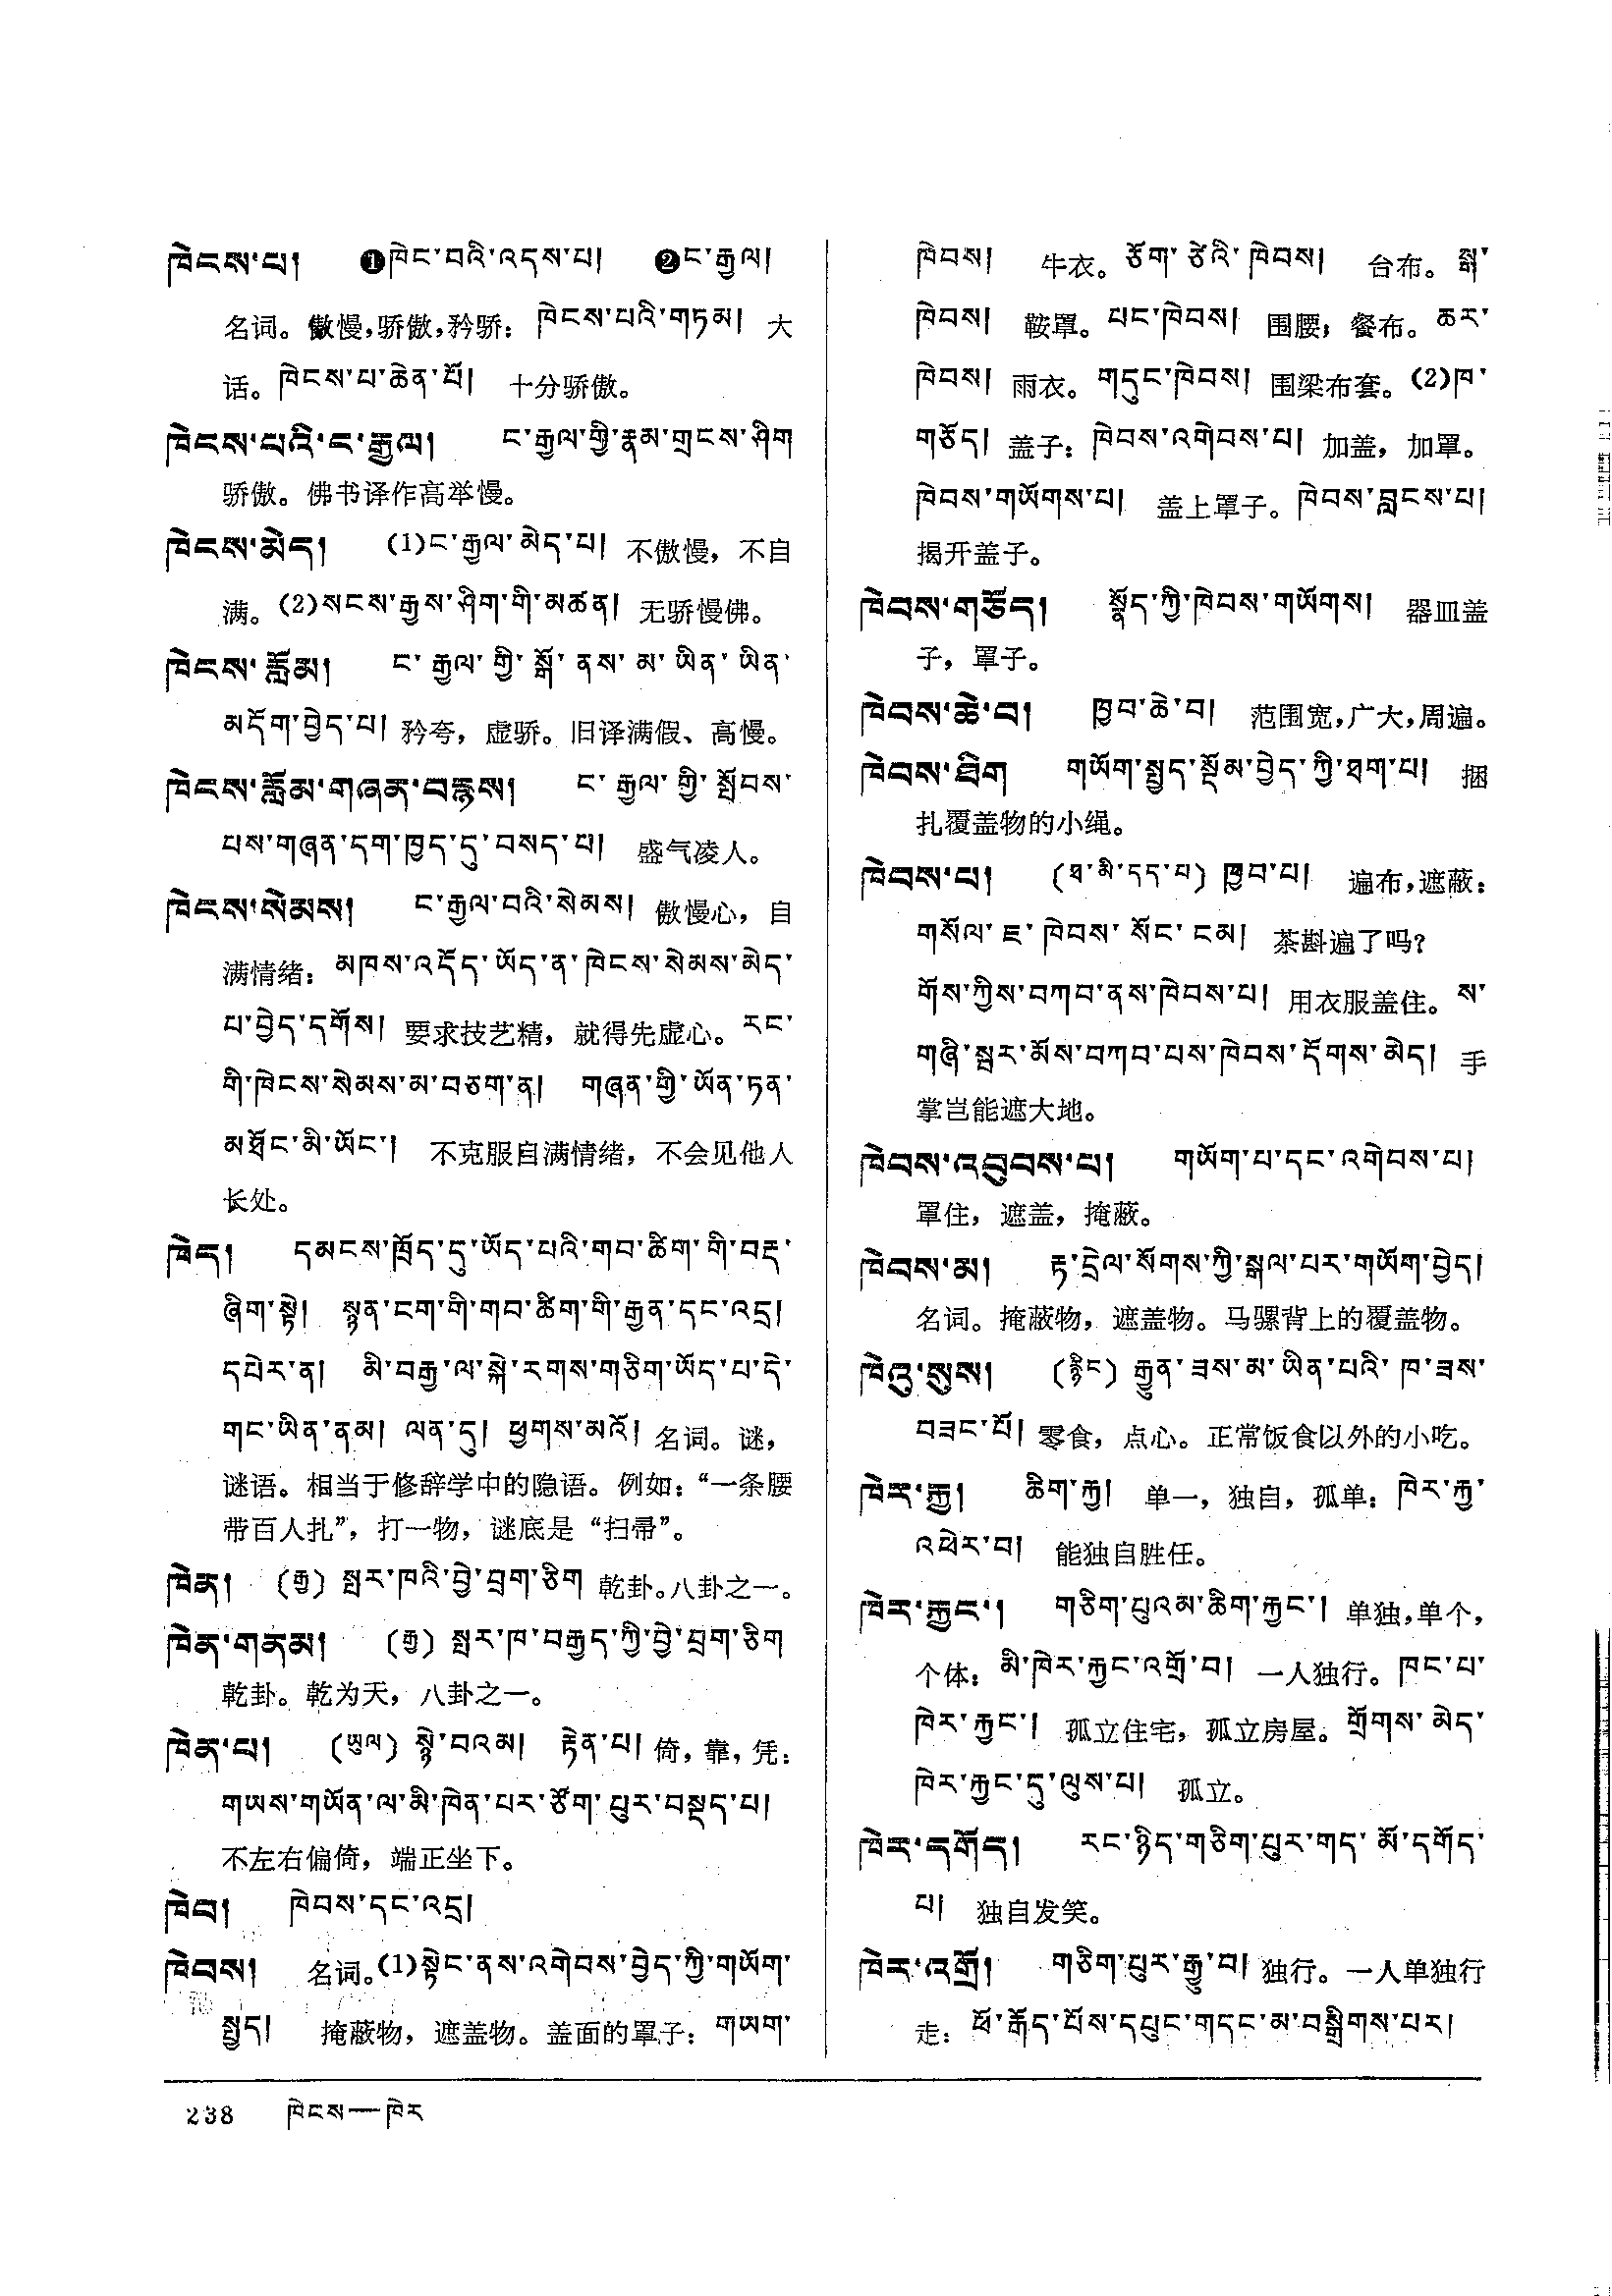 ཁེངས་པ། ❶ཁེང་བའི་འདས་པ། ❷ང་རྒྱལ།
名词。傲慢,骄傲,矜骄：ཁེངས་པའི་གཏམ། 大
话。ཁེངས་པ་ཆེན་པོ། 十分骄傲。
ཁེངས་པའི་ང་རྒྱལ། ང་རྒྱལ་གྱི་རྣམ་གྲངས་ཤིག
骄傲。佛书译作高举慢。
ཁེངས་མེད། (1)ང་རྒྱལ་མེད་པ། 不傲慢，不自
满。(2)སངས་རྒྱས་ཤིག་གི་མཚན། 无骄慢佛。
ཁེངས་རློམ། ང་རྒྱལ་གྱི་སྒོ་ནས་མ་ཡིན་ཡིན་
མདོག་བྱེད་པ། 矜夸，虚骄。旧译满假、高慢。
ཁེངས་རློམ་གཞན་བརྙས། ང་རྒྱལ་གྱི་སྤོབས་
པས་གཞན་དག་ཁྱད་དུ་བསད་པ། 盛气凌人。
ཁེངས་སེམས། ང་རྒྱལ་བའི་སེམས། 傲慢心，自
满情绪：མཁས་འདོད་ཡོད་ན་ཁེངས་སེམས་མེད་
པ་བྱེད་དགོས། 要求技艺精，就得先虚心。རང་
གི་ཁེངས་སེམས་མ་བཅག་ན། གཞན་གྱི་ཡོན་ཏན་
མཐོང་མི་ཡོང་། 不克服自满情绪，不会见他人
长处。
ཁེད། དམངས་ཁྲོད་དུ་ཡོད་པའི་གབ་ཚིག་གི་བརྡ་
ཞིག་སྟེ། སྙན་ངག་གི་གབ་ཚིག་གི་རྒྱན་དང་འདྲ།
དཔེར་ན། མི་བརྒྱ་ལ་སྐེ་རགས་གཅིག་ཡོད་པ་དེ་
གང་ཡིན་ནམ། ལན་དུ། ཕྱགས་མའོ། 名词。谜，
谜语。相当于修辞学中的隐语。例如：“一条腰
带百人扎”，打一物，谜底是“扫帚”。
ཁེན། (རྒྱ) སྤར་ཁའི་བྱེ་བྲག་ཅིག 乾卦。八卦之一。
ཁེན་གནམ། (རྒྱ) སྤར་ཁ་བརྒྱད་ཀྱི་བྱེ་བྲག་ཅིག
乾卦。乾为天，八卦之一。
ཁེན་པ། (ཡུལ) སྙེ་བའམ། རྟེན་པ། 倚，靠，凭：
གཡས་གཡོན་ལ་མི་ཁེན་པར་ཙོག་པུར་བསྡད་པ།
不左右偏倚，端正坐下。
ཁེབ། ཁེབས་དང་འདྲ།
ཁེབས། 名词。(1)སྟེང་ནས་འགེབས་བྱེད་ཀྱི་གཡོག་
སྤྱད། 掩蔽物，遮盖物。盖面的罩子：གཡག་
ཁེབས། 牛衣。ཅོག་ཙེའི་ཁེབས། 台布。སྒ་
ཁེབས། 鞍罩。པང་ཁེབས། 围腰；餐布。ཆར་
ཁེབས། 雨衣。གདུང་ཁེབས། 围梁布套。(2)ཁ་
གཅོད། 盖子：ཁེབས་འགེབས་པ། 加盖，加罩。
ཁེབས་གཡོགས་པ། 盖上罩子。ཁེབས་བླངས་པ།
揭开盖子。
ཁེབས་གཅོད། སྣོད་ཀྱི་ཁེབས་གཡོགས། 器皿盖
子，罩子。
ཁེབས་ཆེ་བ། ཁྱབ་ཆེ་བ། 范围宽,广大,周遍。
ཁེབས་ཐིག གཡོག་སྤྱད་སྡོམ་བྱེད་ཀྱི་ཐག་པ། 捆
扎覆盖物的小绳。
ཁེབས་པ། (ཐ་མི་དད་པ) ཁྱབ་པ། 遍布,遮蔽：
གསོལ་ཇ་ཁེབས་སོང་ངམ། 茶斟遍了吗？
གོས་ཀྱིས་བཀབ་ནས་ཁེབས་པ། 用衣服盖住。ས་
གཞི་སྦར་མོས་བཀབ་པས་ཁེབས་དོགས་མེད། 手
掌岂能遮大地。
ཁེབས་འབུབས་པ། གཡོག་པ་དང་འགེབས་པ།
罩住，遮盖，掩蔽。
ཁེབས་མ། རྟ་དྲེལ་སོགས་ཀྱི་སྒལ་པར་གཡོག་བྱེད།
名词。掩蔽物，遮盖物。马骡背上的覆盖物。
ཁེའུ་སུས། (རྙིང) རྒྱུན་ཟས་མ་ཡིན་པའི་ཁ་ཟས་
བཟང་པོ། 零食，点心。正常饭食以外的小吃。
ཁེར་རྐྱ། ཆིག་རྐྱ། 单一，独自，孤单：ཁེར་རྐྱ་
འཕེར་བ། 能独自胜任。
ཁེར་རྐྱང་། གཅིག་པུའམ་ཆིག་རྐྱང་། 单独,单个，
个体：མི་ཁེར་རྐྱང་འགྲོ་བ། 一人独行。ཁང་པ་
ཁེར་རྐྱང་། 孤立住宅，孤立房屋。གྲོགས་མེད་
ཁེར་རྐྱང་དུ་ལུས་པ། 孤立。
ཁེར་དགོད། རང་ཉིད་གཅིག་པུར་གད་མོ་དགོད་
པ། 独自发笑。
ཁེར་འགྲོ། གཅིག་པུར་རྒྱུ་བ། 独行。一人单独行
走：ཕོ་རྒོད་པོས་དཔུང་གདང་མ་བསྒྲིགས་པར།
238 ཁེངས—ཁེར